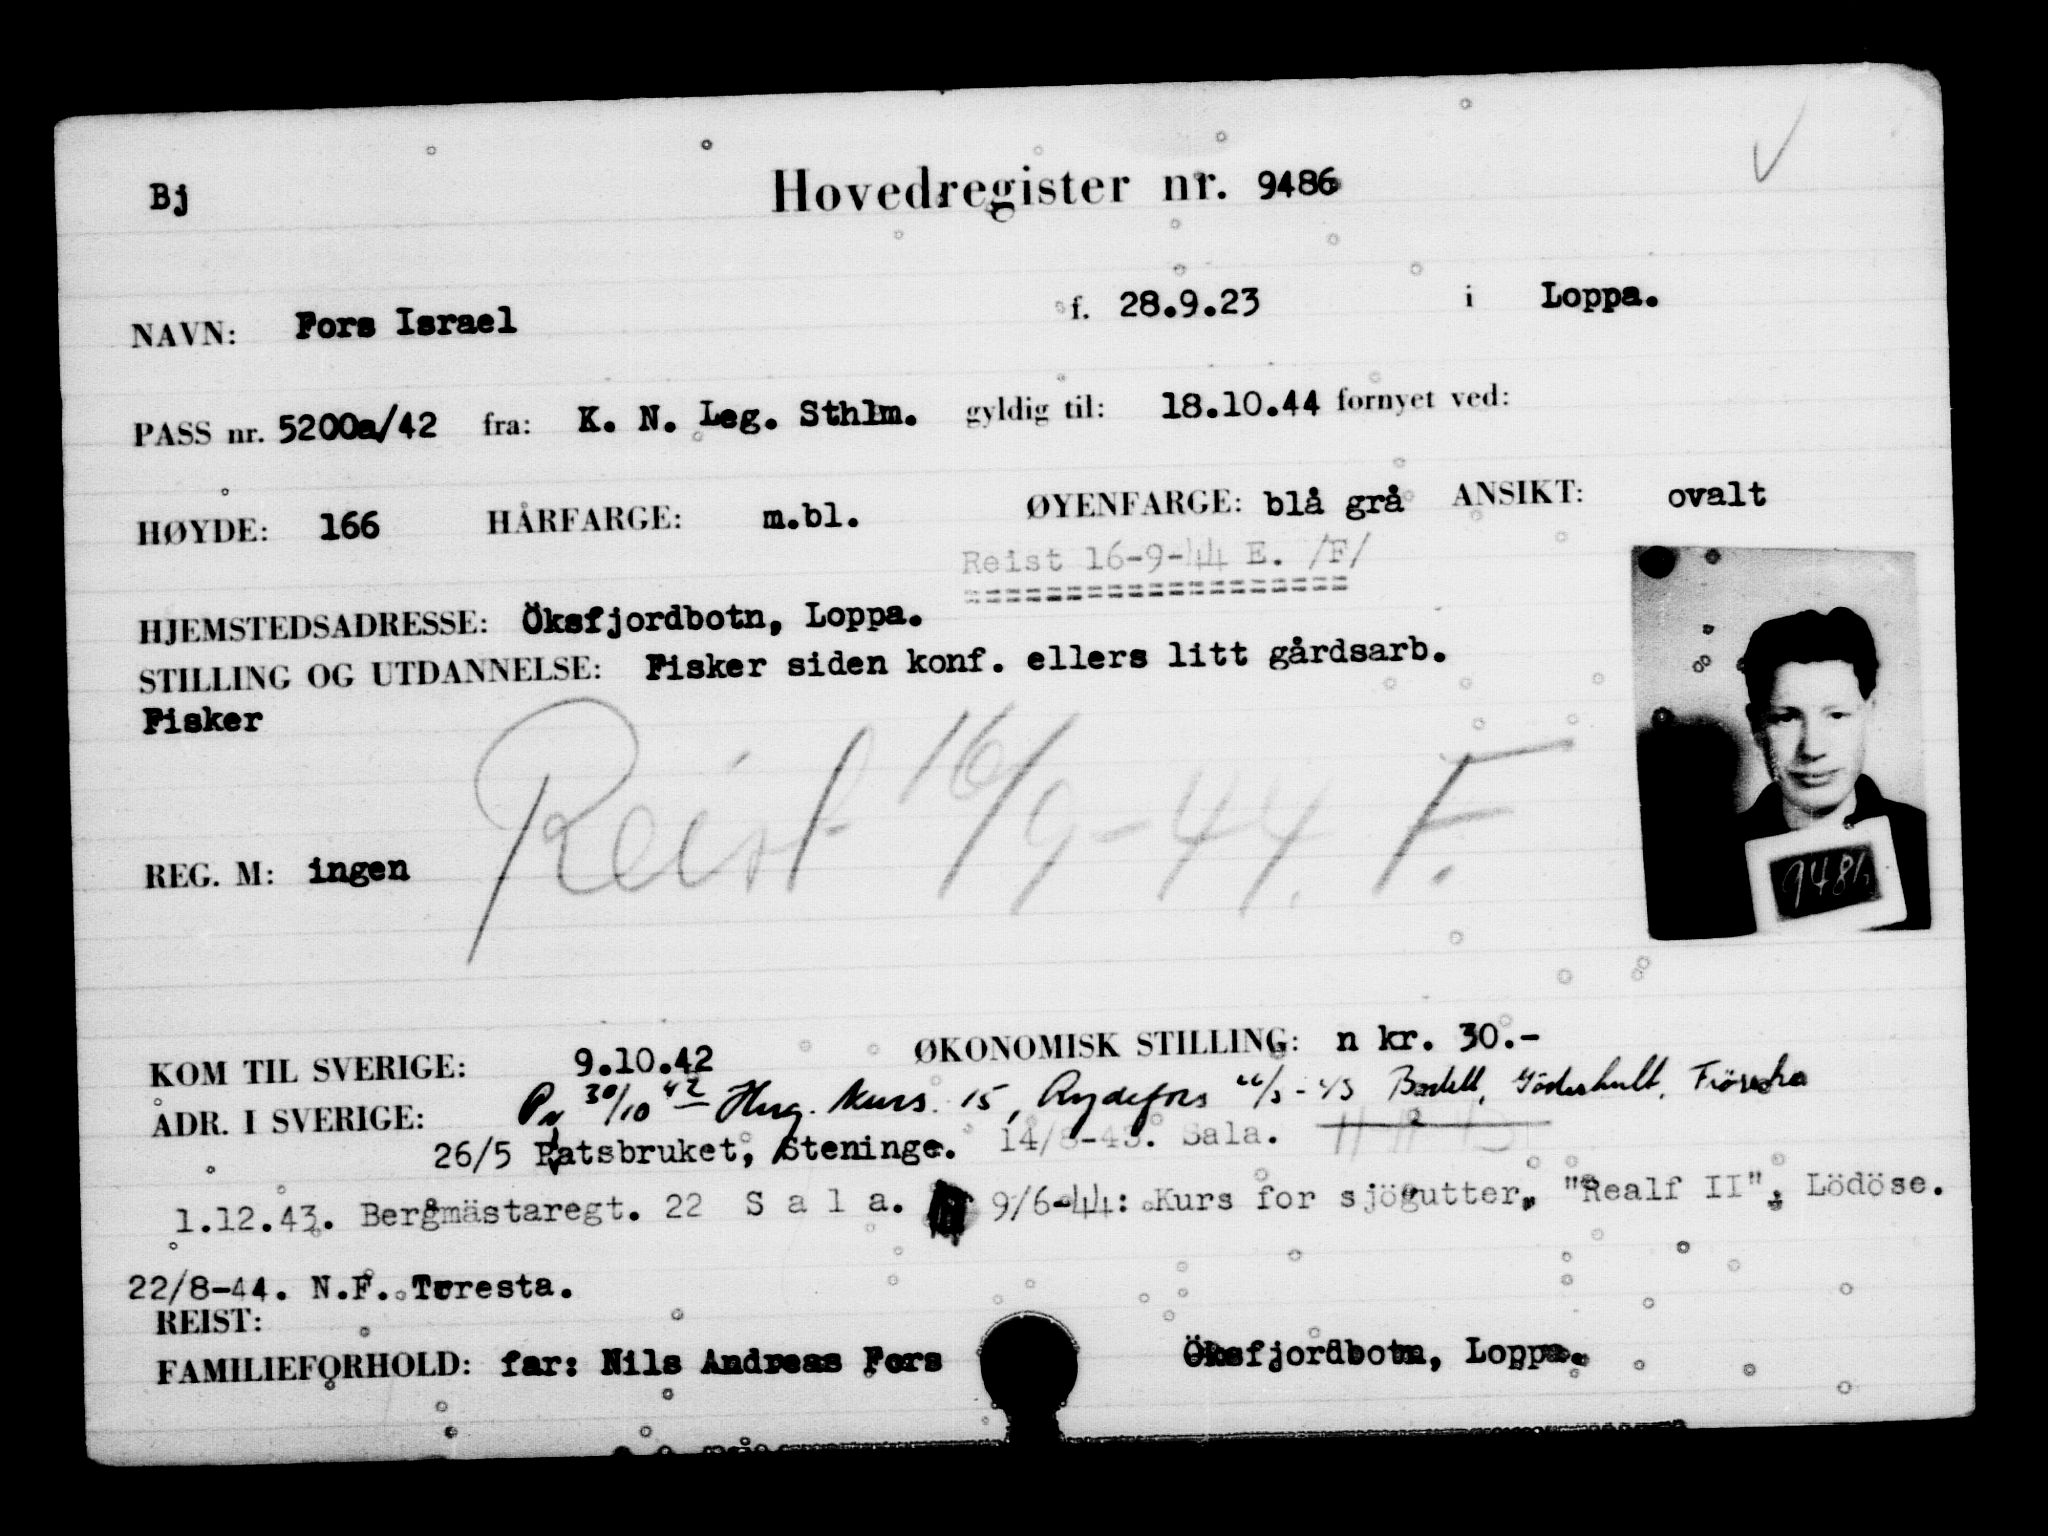 Bj Hovedregister nr. 9486
NAVN: Fors Israel f. 28.9.23 i Loppa.
PASS nr. 5200a/42 fra: K. N. Leg. Sthlm. gyldig til: 18.10.44 fornyet ved:
HØYDE: 166 HÅRFARGE: m.bl. ØYENFARGE: blå grå ANSIKT: ovalt
Reist 16-9-44 E. /F/
HJEMSTEDSADRESSE: Öksfjordbotn, Loppa.
STILLING OG UTDANNELSE: Fisker siden konf. ellers litt gårdsarb.
Fisker
Reist 16/9-44. F.
REG. M: ingen
9486
KOM TIL SVERIGE: 9.10.42 ØKONOMISK STILLING: n kr. 30.-
ADR. I SVERIGE: 30/10 42 Hug. kurs. 15, Rydefors
26/5 Patsbruket, Steninge. 14/8-43. Sala.
1.12.43. Bergmästaregt. 22 Sala. 9/6-44: Kurs for sjögutter, "Realf II", Lödöse.
22/8-44. N.F. Toresta.
REIST:
FAMILIEFORHOLD: far: Nils Andreas Fors Öksfjordbotn, Loppa.